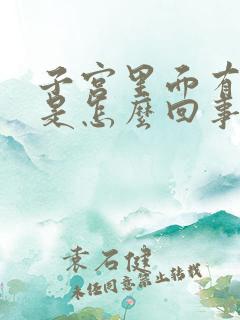 子宫里面有
是怎麼回事
袁石健
未经同意禁止转载